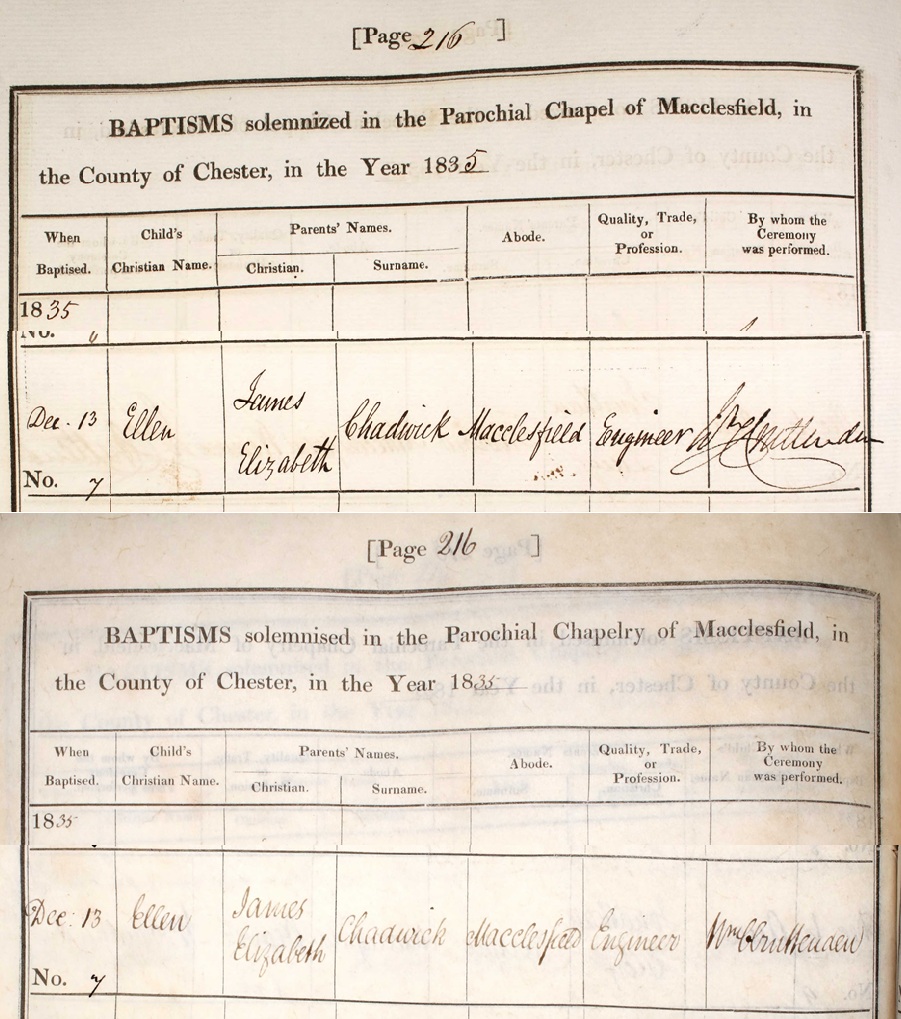 [Page 216 ]
BAPTISMS solemnized in the Parochial Chapel of Macclesfield, in
the County of Chester, in the Year 1835
When Baptised. Child's Christian Name. Parents' Names. Christian. Surname. Abode. Quality, Trade, or Profession. By whom the Ceremony was performed.
1835
No. 6
Dec. 13 Ellen James Elizabeth Chadwick Macclesfield Engineer Wm Cruttenden
No. 7
[Page 216 ]
BAPTISMS solemnised in the Parochial Chapelry of Macclesfield, in
the County of Chester, in the Year 1835
When Baptised. Child's Christian Name. Parents' Names. Christian. Surname. Abode. Quality, Trade, or Profession. By whom the Ceremony was performed.
1835
Dec: 13 Ellen James Elizabeth Chadwick Macclesfield Engineer Wm Cruttenden
No. 7